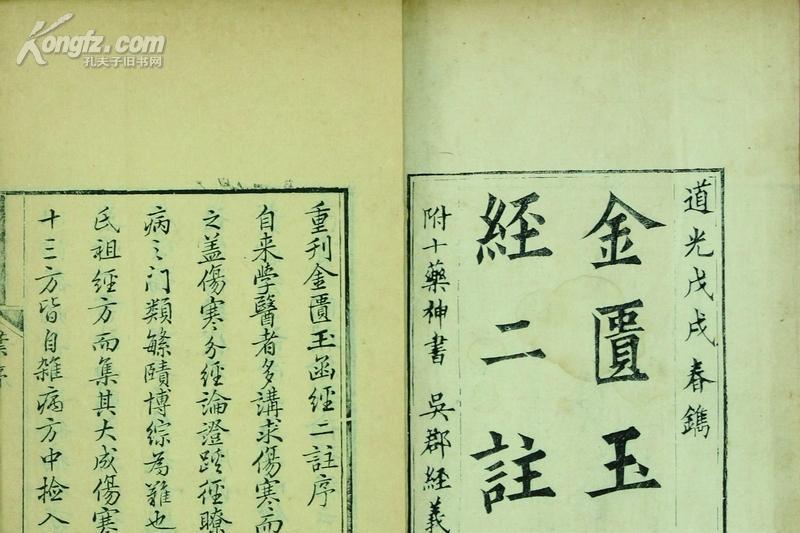 Kongfz.com
孔夫子旧书网
道光戊戌春鐫
金匱玉
經二註
附十藥神書 吳郡經義
重刊金匱玉函經二註序
自来学醫者多講求傷寒而
之盖傷寒分經論證蹊徑瞭
病之门類緐賾博綜為難也
氏祖經方而集其大成傷寒
十三方皆自雜病方中捡入